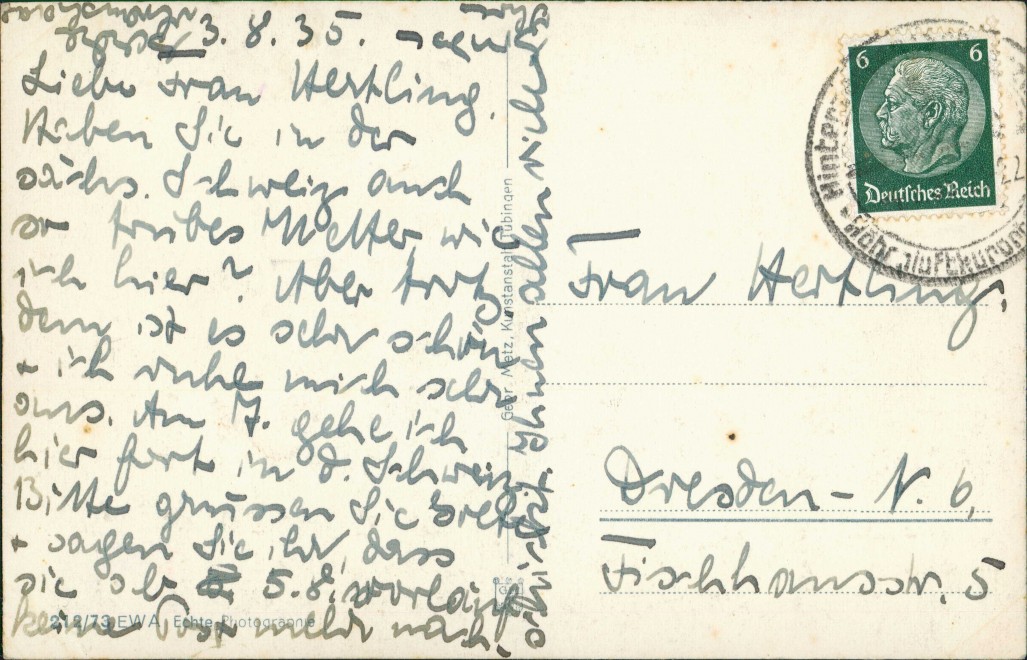 3. 8. 35.
Liebe Frau Hertling,
Haben Sie in der
sächs. Schweiz auch
so trübes Wetter, wie
ich hier? Aber trotz
dem ist es sehr schön
+ ich ruhe mich sehr
aus. Am 7. gehe ich
hier fort in d. Schweiz
Bitte grüssen Sie
+ sagen Sie ihr, dass
sie ab 5.8. vorläufig
keine Post mehr nach
schickt. Ihnen allen viele
212/73 EWA Echte Photographie
Gebr. Metz, Kunstanstalt, Tübingen
6 6
Deutsches Reich
Frau Hertling,
Dresden - N. 6,
Fischhausstr. 5